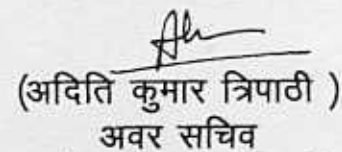 (अदिति कुमार त्रिपाठी )
अवर सचिव